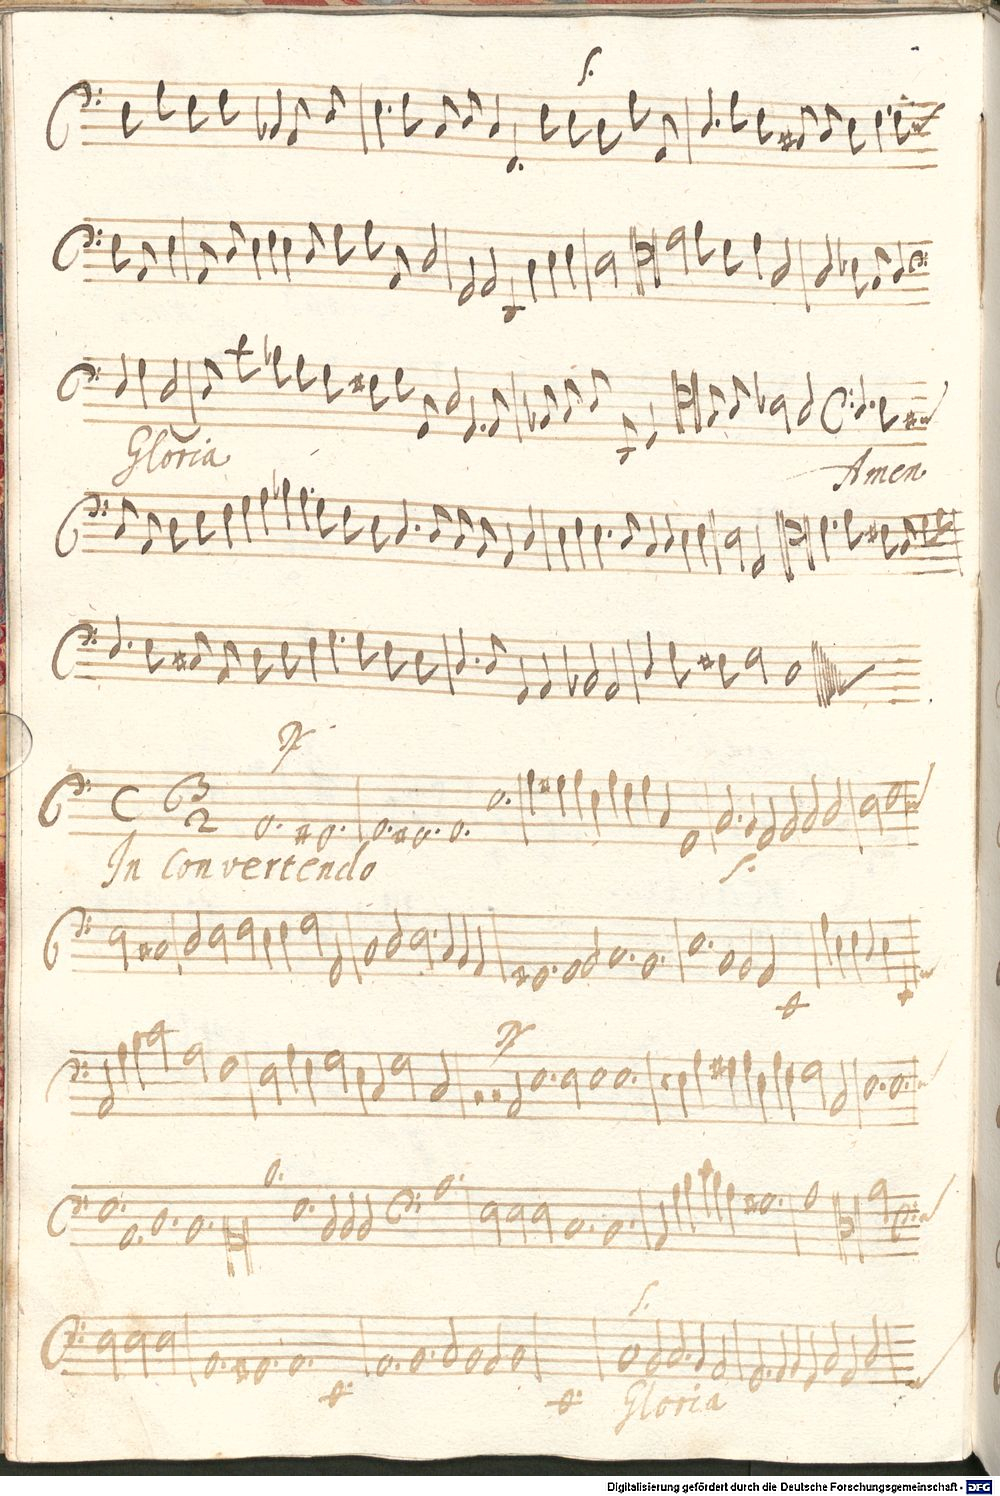 S.
Gloria
Amen
C 3
2
In convertendo
S.
S.
Gloria
Digitalisierung gefördert durch die Deutsche Forschungsgemeinschaft - DFG